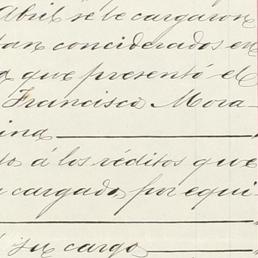 Abril se le cargaron
tan conciderados en
que presentó el
Francisco Mora-
ina
á los réditos que
cargado por equi-
su cargo